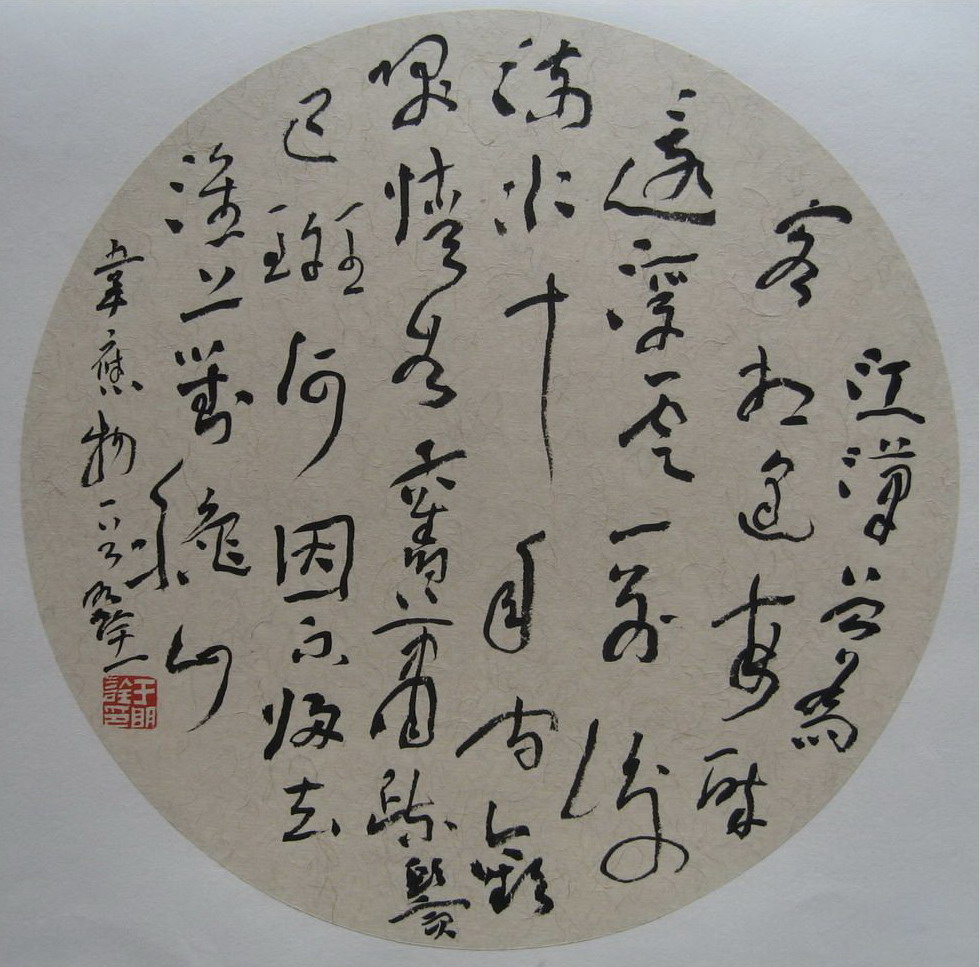 江漢曾為
客相逢每醉
還浮雲一別後
流水十年間歡
咲情如舊蕭疏鬢
已斑何因不歸去
淮上對龝山
韋應物一首明詮
于明詮印